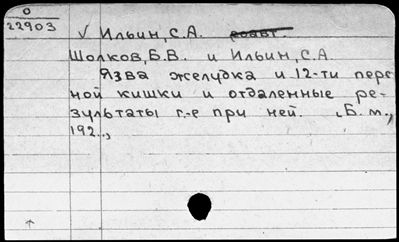 О
22903
√ Ильин, С.А.
Шолков, Б.В. и Ильин, С.А.
Язва желудка и 12-ти перс
ной кишки и отдаленные ре-
зультаты г.-е при ней. Б. м.,
192..,